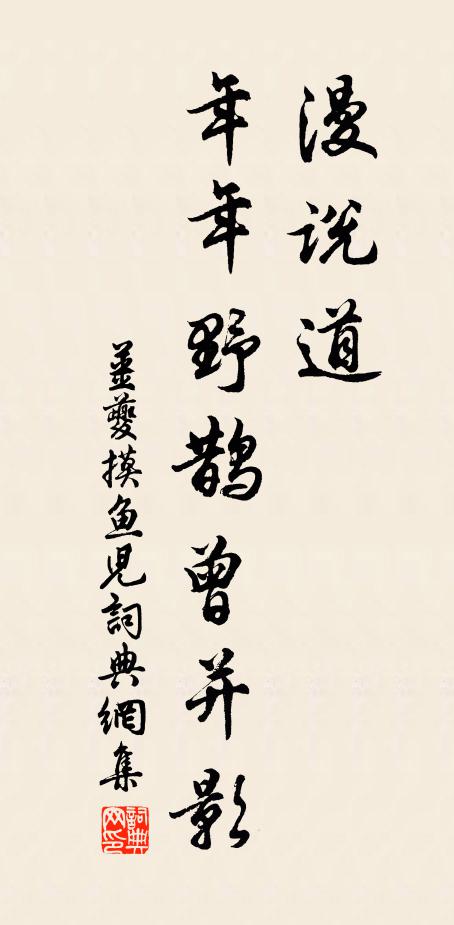 漫说道
年年野鹊曾并影
姜夔摸鱼儿詞典網集
詞典网印